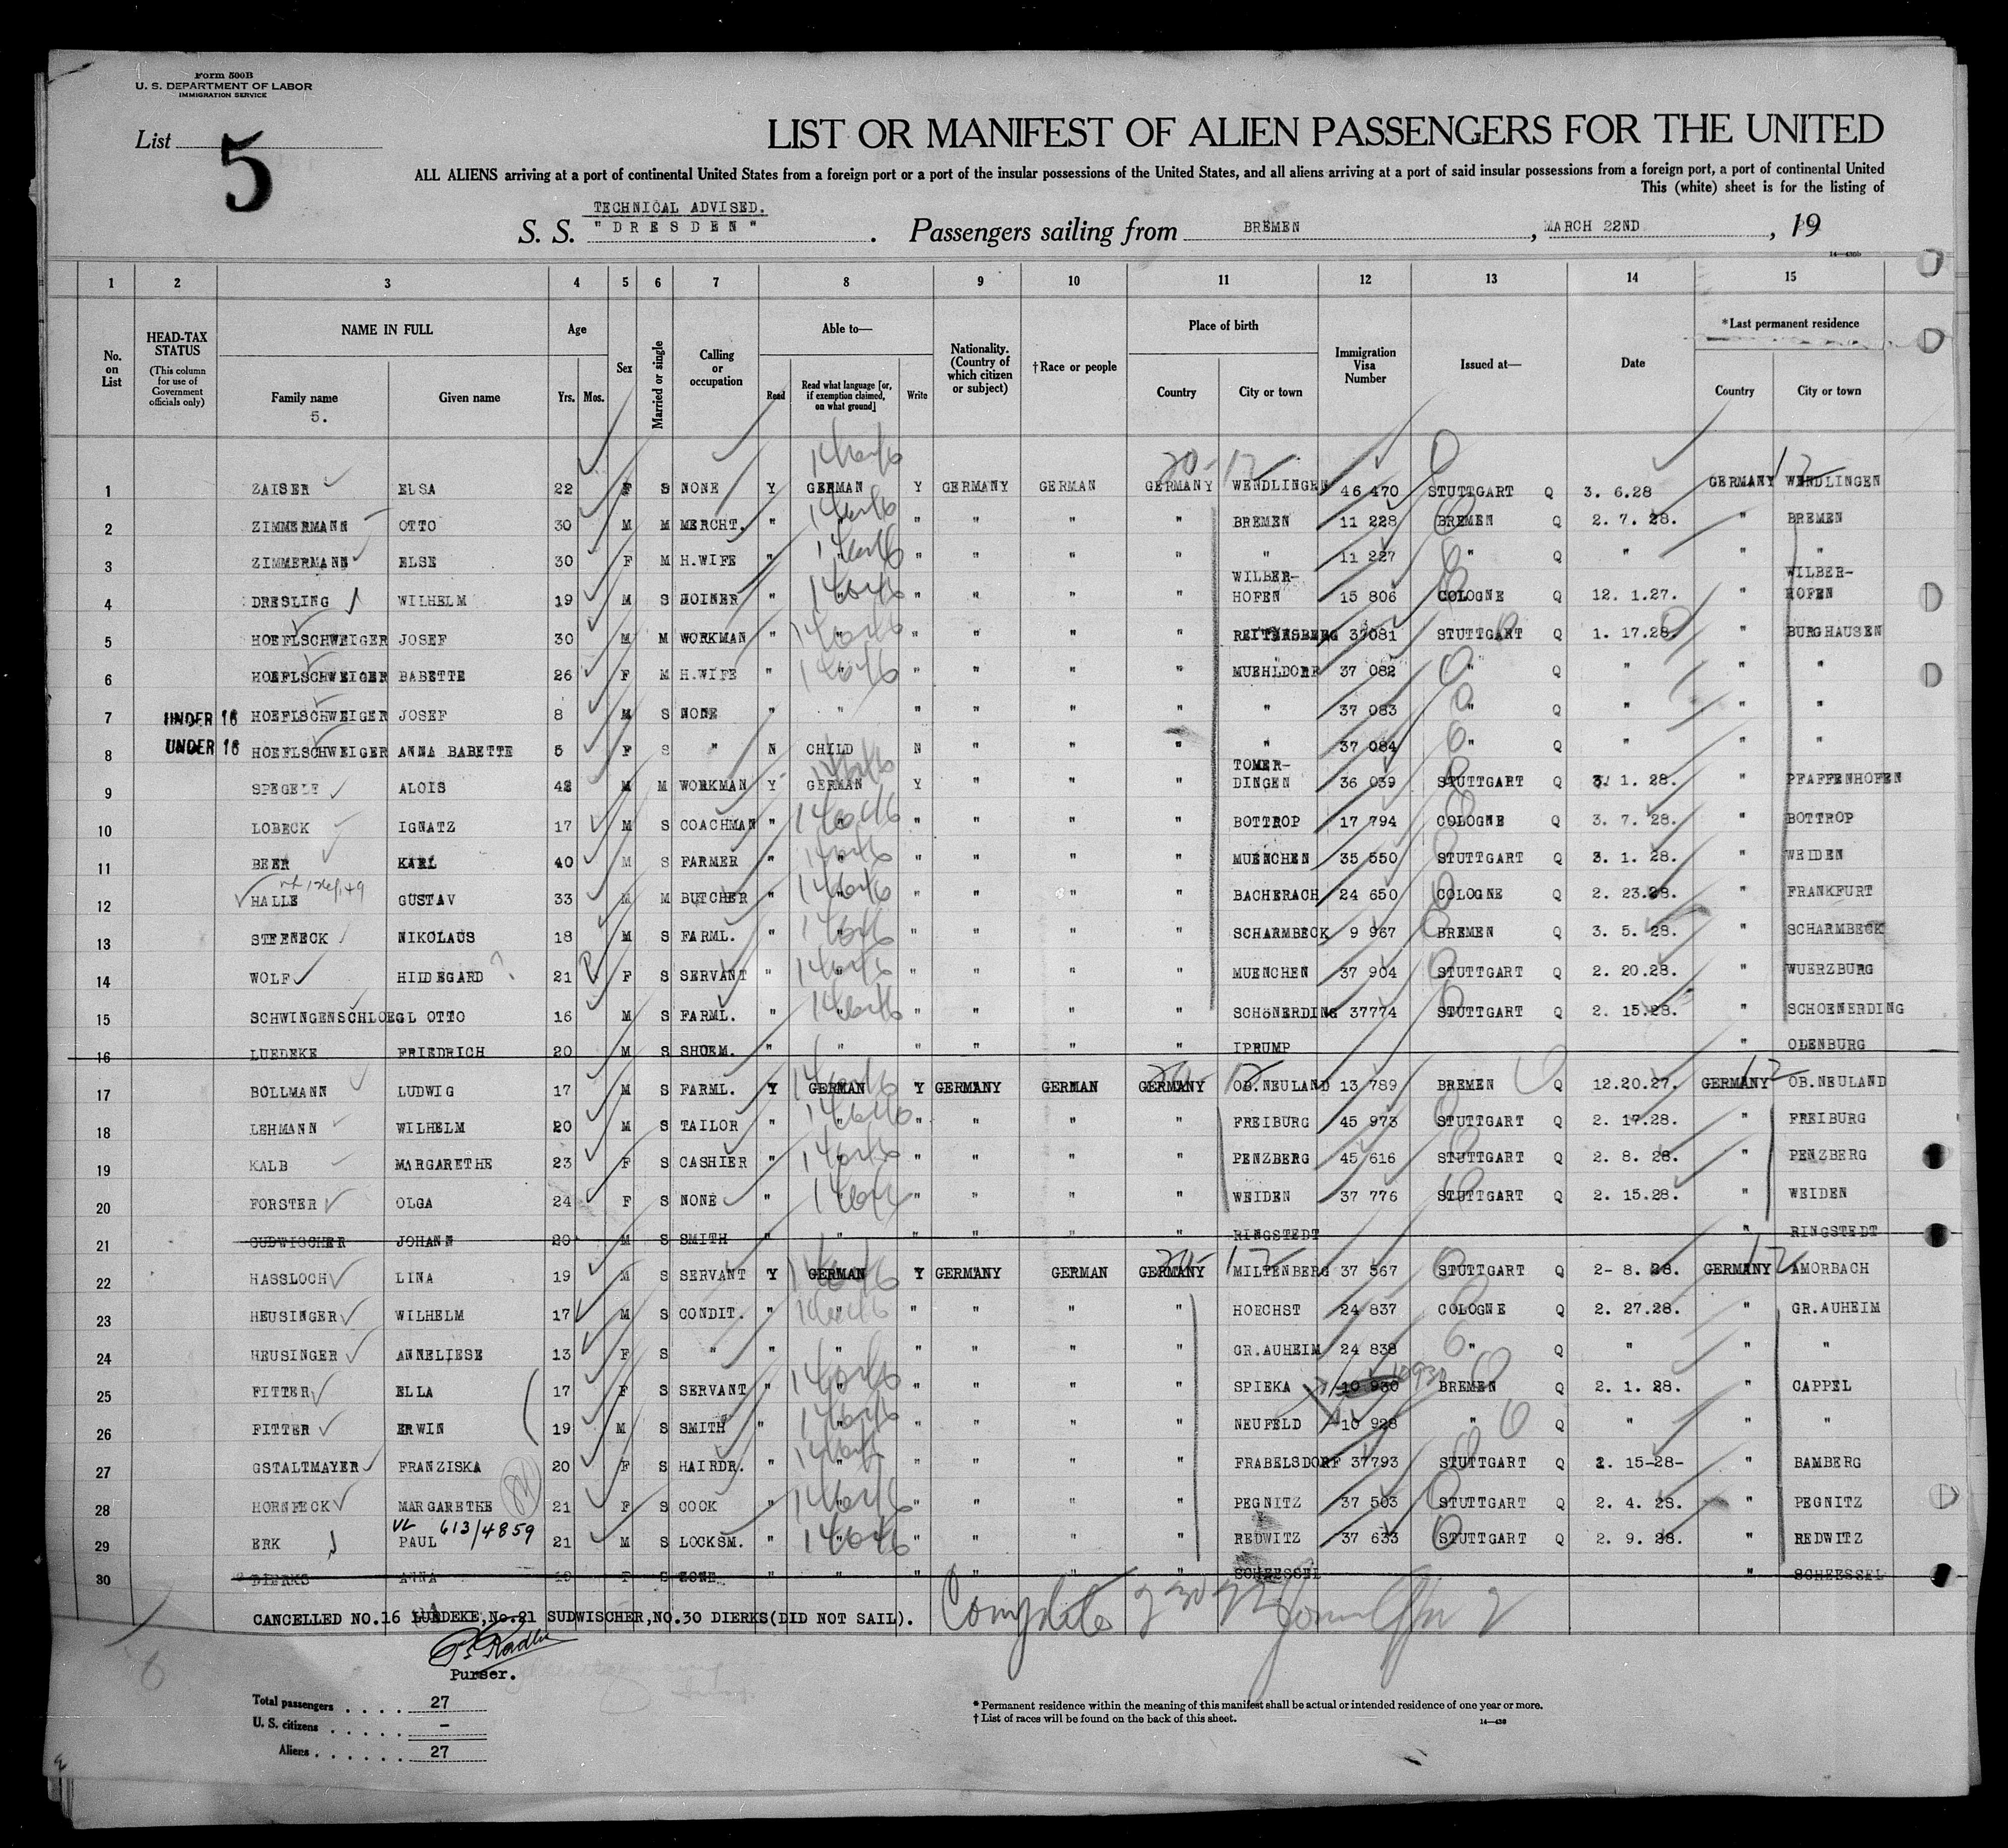 Form 500B
U. S. DEPARTMENT OF LABOR
IMMIGRATION SERVICE
List 5
LIST OR MANIFEST OF ALIEN PASSENGERS FOR THE UNITED
ALL ALIENS arriving at a port of continental United States from a foreign port or a port of the insular possessions of the United States, and all aliens arriving at a port of said insular possessions from a foreign port, a port of continental United
This (white) sheet is for the listing of
TECHNICAL ADVISED.
S. S. "DRESDEN". Passengers sailing from BREMEN, MARCH 22ND, 19
1 2 3 4 5 6 7 8 9 10 11 12 13 14 15
No. on List HEAD-TAX STATUS (This column for use of Government officials only) NAME IN FULL Family name Given name Age Yrs. Mos. Sex Married or single Calling or occupation Able to— Read Read what language [or, if exemption claimed, on what ground] Write Nationality. (Country of which citizen or subject) †Race or people Place of birth Country City or town Immigration Visa Number Issued at— Date *Last permanent residence Country City or town
5.
20-12 12
1 ZAISER ELSA 22 F S NONE Y GERMAN Y GERMANY GERMAN GERMANY WENDLINGEN 46 470 STUTTGART Q 3. 6.28 GERMANY WENDLINGEN
2 ZIMMERMANN OTTO 30 M M MERCHT. " " " " " " BREMEN 11 228 BREMEN Q 2. 7. 28. " BREMEN
3 ZIMMERMANN ELSE 30 F M H.WIFE " " " " " " " 11 227 " Q " " "
4 DRESLING WILHELM 19 M S JOINER " " " " " " WILBER-HOFEN 15 806 COLOGNE Q 12. 1.27. " WILBER-HOFEN
5 HOEFLSCHWEIGER JOSEF 30 M M WORKMAN " " " " " " REITERSBERG 37081 STUTTGART Q 1. 17.28. " BURGHAUSEN
6 HOEFLSCHWEIGER BABETTE 26 F M H.WIFE " " " " " " MUEHLDORF 37 082 " Q " " "
7 UNDER 16 HOEFLSCHWEIGER JOSEF 8 M S NONE " " " " " " 37 083 " Q " " "
8 UNDER 16 HOEFLSCHWEIGER ANNA BABETTE 5 F S " N CHILD N " " " " 37 084 " Q " " "
9 SPEGELE ALOIS 42 M M WORKMAN Y GERMAN Y " " " TOMER-DINGEN 36 039 STUTTGART Q 3. 1. 28. " PFAFFENHOFEN
10 LOBECK IGNATZ 17 M S COACHMAN " " " " " " BOTTROP 17 794 COLOGNE Q 3. 7. 28. " BOTTROP
11 BEER KARL 40 M S FARMER " " " " " " MUENCHEN 35 550 STUTTGART Q 3. 1. 28. " WEIDEN
12 HALLE GUSTAV 33 M M BUTCHER " " " " " " BACHERACH 24 650 COLOGNE Q 2. 23.28. " FRANKFURT
13 STEENECK NIKOLAUS 18 M S FARML. " " " " " " SCHARMBECK 9 967 BREMEN Q 3. 5. 28. " SCHARMBECK
14 WOLF HILDEGARD ? 21 F S SERVANT " " " " " " MUENCHEN 37 904 STUTTGART Q 2. 20.28. " WUERZBURG
15 SCHWINGENSCHLOEGL OTTO 16 M S FARML. " " " " " " SCHöNERDING 37774 STUTTGART Q 2. 15.28. " SCHOENERDING
16 LUEDEKE FRIEDRICH 20 M S SHOEM. " " " " " " IPRUMP " OLDENBURG
17 BOLLMANN LUDWIG 17 M S FARML. Y GERMAN Y GERMANY GERMAN GERMANY OB.NEULAND 13 789 BREMEN Q 12.20.27. GERMANY OB.NEULAND
18 LEHMANN WILHELM 20 M S TAILOR " " " " " " FREIBURG 45 973 STUTTGART Q 2. 17.28. " FREIBURG
19 KALB MARGARETHE 23 F S CASHIER " " " " " " PENZBERG 45 616 STUTTGART Q 2. 8. 28. " PENZBERG
20 FORSTER OLGA 24 F S NONE " " " " " " WEIDEN 37 776 STUTTGART Q 2. 15.28. " WEIDEN
21 SUDWISCHER JOHANN 20 M S SMITH " " " " " " RINGSTEDT " RINGSTEDT
22 HASSLOCH LINA 19 M S SERVANT Y GERMAN Y GERMANY GERMAN GERMANY MILTENBERG 37 567 STUTTGART Q 2- 8. 28. GERMANY AMORBACH
23 HEUSINGER WILHELM 17 M S CONDIT. " " " " " " HOECHST 24 837 COLOGNE Q 2. 27.28. " GR.AUHEIM
24 HEUSINGER ANNELIESE 13 F S " " " " " " " GR.AUHEIM 24 838 " Q " " "
25 FITTER ELLA 17 F S SERVANT " " " " " " SPIEKA 10 930 BREMEN Q 2. 1. 28. " CAPPEL
26 FITTER ERWIN 19 M S SMITH " " " " " " NEUFELD 10 928 " Q " " "
27 GSTALTMAYER FRANZISKA 20 F S HAIRDR. " " " " " " FRABELSDORF 37793 STUTTGART Q 2. 15-28- " BAMBERG
28 HORNFECK MARGARETHE 21 F S COOK " " " " " " PEGNITZ 37 503 STUTTGART Q 2. 4. 28. " PEGNITZ
VL 613/4859
29 ERK PAUL 21 M S LOCKSM. " " " " " " REDWITZ 37 633 STUTTGART Q 2. 9. 28. " REDWITZ
30 DIERKS ANNA 19 F S NONE " " " " " " SCHEESSEL " SCHEESSEL
CANCELLED NO.16 LUEDEKE,No.21 SUDWISCHER,NO.30 DIERKS(DID NOT SAIL).
Purser.
Total passengers . . . . 27
U. S. citizens . . . . . –
Aliens . . . . . . 27
* Permanent residence within the meaning of this manifest shall be actual or intended residence of one year or more.
† List of races will be found on the back of this sheet.